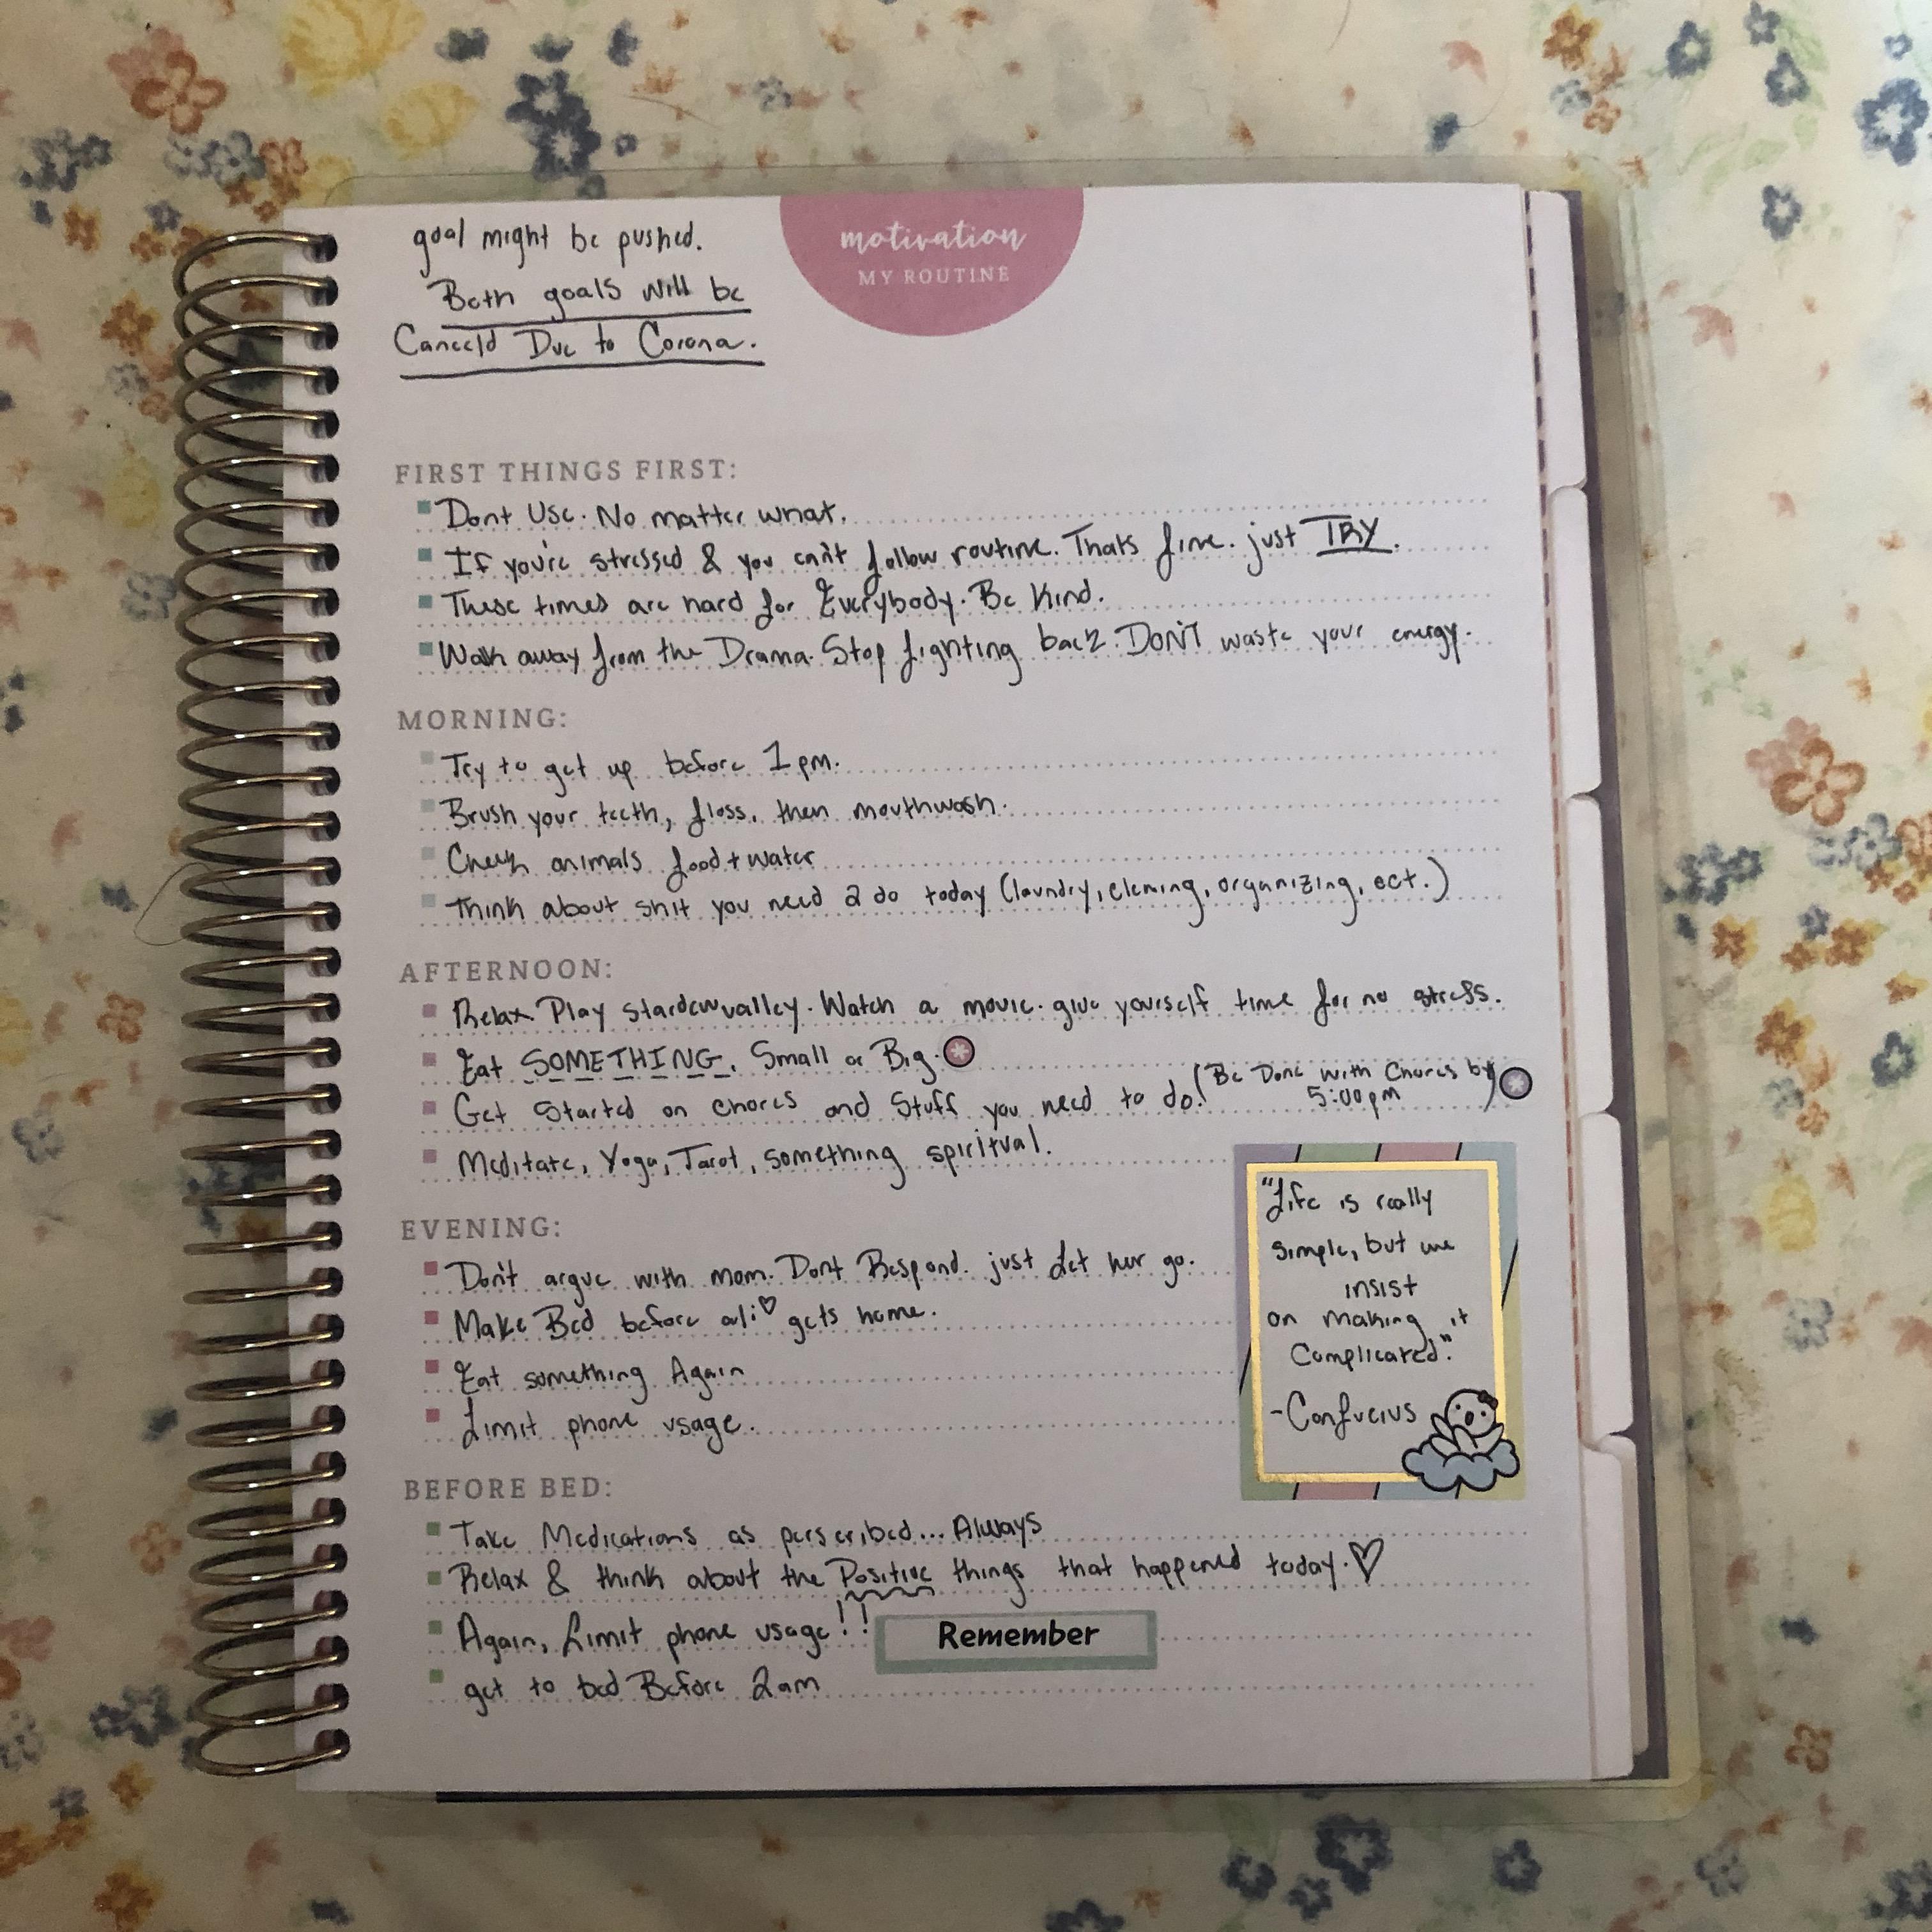 goal might be pushed.
Both goals will be
Canceld Due to Corona.
motivation
MY ROUTINE
FIRST THINGS FIRST:
Dont Use. No matter what.
If you're stressed & you can't follow routine. Thats fine. just TRY.
These times are hard for Everybody. Be Kind.
Walk away from the Drama. Stop fighting back. DON'T waste your energy.
MORNING:
Try to get up before 1pm.
Brush your teeth, floss, then mouthwash.
Check animals food + water
Think about shit you need 2 do today (laundry, clening, organizing, ect.)
AFTERNOON:
Relax Play stardewvalley. Watch a movie. give yourself time for no stress.
Eat SOMETHING. Small or Big.
Get Started on chores and Stuff you need to do. (Be Done with Chores by
5:00pm)
Meditate, Yoga, Tarot, something spiritual.
EVENING:
Don't argue with mom. Dont Respond. just Let her go.
Make Bed before ali♡ gets home.
Eat something Again
Limit phone usage.
"Life is really
simple, but we
insist
on making it
Complicated."
-Confucius
BEFORE BED:
Take Medications as perscribed... Always
Relax & think about the Positive things that happened today. ♡
Again, Limit phone usage!!
Remember
get to bed Before 2am